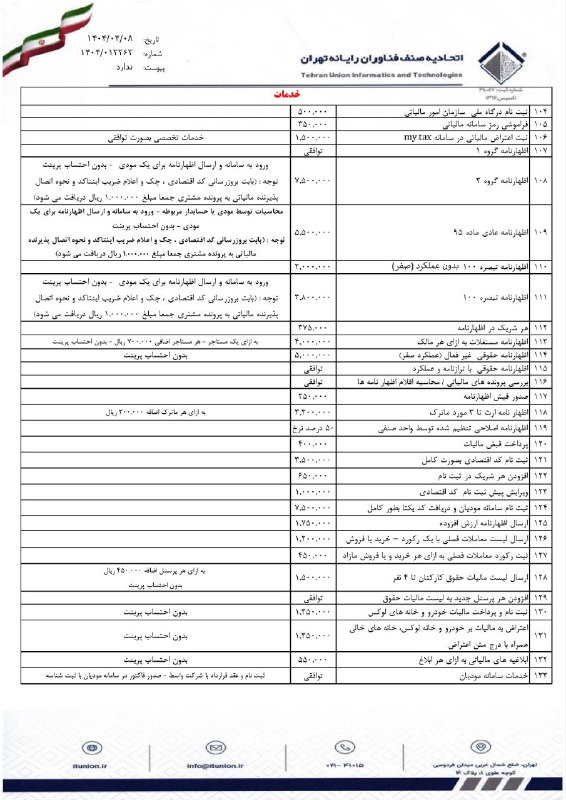 اتحادیه صنف فناوران رایانه تهران
Tehran Union Informatics and Technologies
تاریخ: ۱۴۰۴/۰۴/۰۸
شماره: ۱۴۰۴/۰۱۲۲۶۲
پیوست: ندارد
خدمات
۱۰۴ ثبت نام درگاه ملی سازمان امور مالیاتی ۵۰۰,۰۰۰
۱۰۵ فراموشی رمز سامانه مالیاتی ۳۵۰,۰۰۰
۱۰۶ ثبت اعتراض مالیاتی در سامانه my.tax ۱,۵۰۰,۰۰۰ خدمات تخصصی بصورت توافقی
۱۰۷ اظهارنامه گروه ۱ توافقی
۱۰۸ اظهارنامه گروه ۲ ۷,۵۰۰,۰۰۰ ورود به سامانه و ارسال اظهارنامه برای یک مودی - بدون احتساب پرینت
توجه : (بابت بروزرسانی کد اقتصادی ، چک و اعلام ضریب اینتاکد و نحوه اتصال
پذیرنده مالیاتی به پرونده مشتری جمعا مبلغ ۱,۰۰۰,۰۰۰ ریال دریافت می شود)
۱۰۹ اظهارنامه عادی ماده ۹۵ ۵,۵۰۰,۰۰۰ محاسبات توسط مودی یا حسابدار مربوطه - ورود به سامانه و ارسال اظهارنامه برای یک
مودی - بدون احتساب پرینت
توجه : (بابت بروزرسانی کد اقتصادی ، چک و اعلام ضریب اینتاکد و نحوه اتصال پذیرنده
مالیاتی به پرونده مشتری جمعا مبلغ ۱,۰۰۰,۰۰۰ ریال دریافت می شود)
۱۱۰ اظهارنامه تبصره ۱۰۰ بدون عملکرد (صفر) ۲,۰۰۰,۰۰۰
۱۱۱ اظهارنامه تبصره ۱۰۰ ۳,۸۰۰,۰۰۰ ورود به سامانه و ارسال اظهارنامه برای یک مودی - بدون احتساب پرینت
توجه : (بابت بروزرسانی کد اقتصادی ، چک و اعلام ضریب اینتاکد و نحوه اتصال
پذیرنده مالیاتی به پرونده مشتری جمعا مبلغ ۱,۰۰۰,۰۰۰ ریال دریافت می شود)
۱۱۲ هر شریک در اظهارنامه ۳۷۵,۰۰۰
۱۱۳ اظهارنامه مستغلات به ازای هر مالک ۴,۰۰۰,۰۰۰ به ازای یک مستاجر - هر مستاجر اضافی ۷۰۰,۰۰۰ ریال - بدون احتساب پرینت
۱۱۴ اظهارنامه حقوقی غیر فعال (عملکرد صفر) ۵,۰۰۰,۰۰۰ بدون احتساب پرینت
۱۱۵ اظهارنامه حقوقی با ترازنامه و عملکرد توافقی
۱۱۶ بررسی پرونده های مالیاتی / محاسبه اقلام اظهار نامه ها توافقی
۱۱۷ صدور قبض اظهارنامه ۲۵۰,۰۰۰
۱۱۸ اظهار نامه ارث تا ۳ مورد ماترک ۳,۲۰۰,۰۰۰ به ازای هر ماترک اضافه ۲۰۰,۰۰۰ ریال
۱۱۹ اظهارنامه اصلاحی تنظیم شده توسط واحد صنفی ۵۰ درصد نرخ
۱۲۰ پرداخت قبض مالیات ۴۰۰,۰۰۰
۱۲۱ ثبت نام کد اقتصادی بصورت کامل ۳,۵۰۰,۰۰۰
۱۲۲ افزودن هر شریک در ثبت نام ۶۵۰,۰۰۰
۱۲۳ ویرایش پیش ثبت نام کد اقتصادی ۱,۰۰۰,۰۰۰
۱۲۴ ثبت نام سامانه مودیان و دریافت کد یکتا بطور کامل ۷,۵۰۰,۰۰۰
۱۲۵ ارسال اظهارنامه ارزش افزوده ۱,۷۵۰,۰۰۰
۱۲۶ ارسال لیست معاملات فصلی با یک رکورد – خرید یا فروش ۱,۲۰۰,۰۰۰
۱۲۷ ثبت رکورد معاملات فصلی به ازای هر خرید و یا فروش مازاد ۴۵۰,۰۰۰
۱۲۸ ارسال لیست مالیات حقوق کارکنان تا ۴ نفر ۱,۵۰۰,۰۰۰ به ازای هر پرسنل اضافه ۴۵۰,۰۰۰ ریال
بدون احتساب پرینت
۱۲۹ افزودن هر پرسنل جدید به لیست مالیات حقوق توافقی
۱۳۰ ثبت نام و پرداخت مالیات خودرو و خانه های لوکس ۱,۲۵۰,۰۰۰ بدون احتساب پرینت
۱۳۱ اعتراض به مالیات بر خودرو و خانه لوکس، خانه های خالی
همراه با درج متن اعتراض ۱,۳۵۰,۰۰۰ بدون احتساب پرینت
۱۳۲ ابلاغیه های مالیاتی به ازای هر ابلاغ ۵۵۰,۰۰۰ بدون احتساب پرینت
۱۳۳ خدمات سامانه مودیان توافقی ثبت نام و عقد قرارداد با شرکت واسط - صدور فاکتور در سامانه مودیان با ثبت شناسه
itunion.ir
info@itunion.ir
۰۲۱-۴۱۰۱۵
تهران، ضلع شمال غربی میدان فردوسی
کوچه علوی ۱، پلاک ۱۴